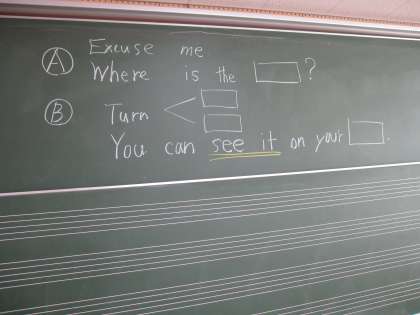 Ⓐ Excuse me
Where is the ?
Ⓑ Turn
You can see it on your .